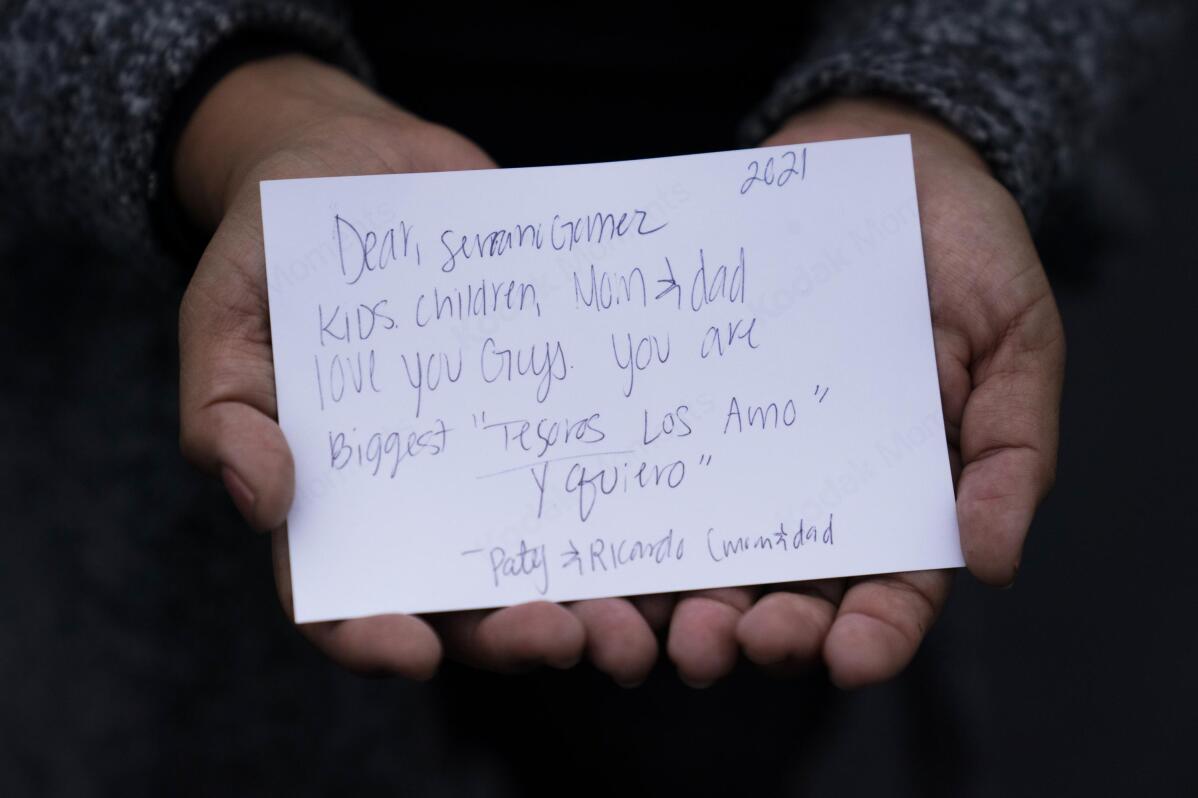 2021
Dear, Serrano Gomez
KIDS. children, Mom & dad
love you Guys. you are
Biggest "Tesoros Los Amo"
Y quiero"
- Paty & Ricardo (mom & dad
Kodak Moments